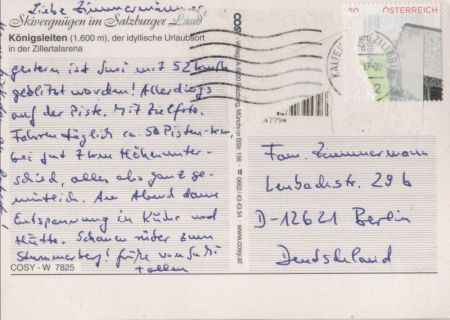 Liebe Zimmermänner,
Skivergnügen im Salzburger Land
Königsleiten (1.600 m), der idyllische Urlaubsort
in der Zillertalarena
gestern ist Susi mit 52 km/h
geblitzt worden! Allerdings
auf der Piste. Mit Zielfoto.
Fahren täglich ca. 50 Pisten-km,
bei gut 7 km Höhenunter-
schied, alles also ganz ge-
mütlich. Am Abend dann
Entspannung in Küche und
Hütte. Schauen rüber zum
Sturmberg! Grüße von Susi
COSY - W 7825
COSY
Salzburg, Münchner Bltr. 156
0662/43-43-34
www.cosy.at
4779
ÖSTERREICH
Fam. Zimmermann
Lenbachstr. 29b
D-12621 Berlin
Deutschland